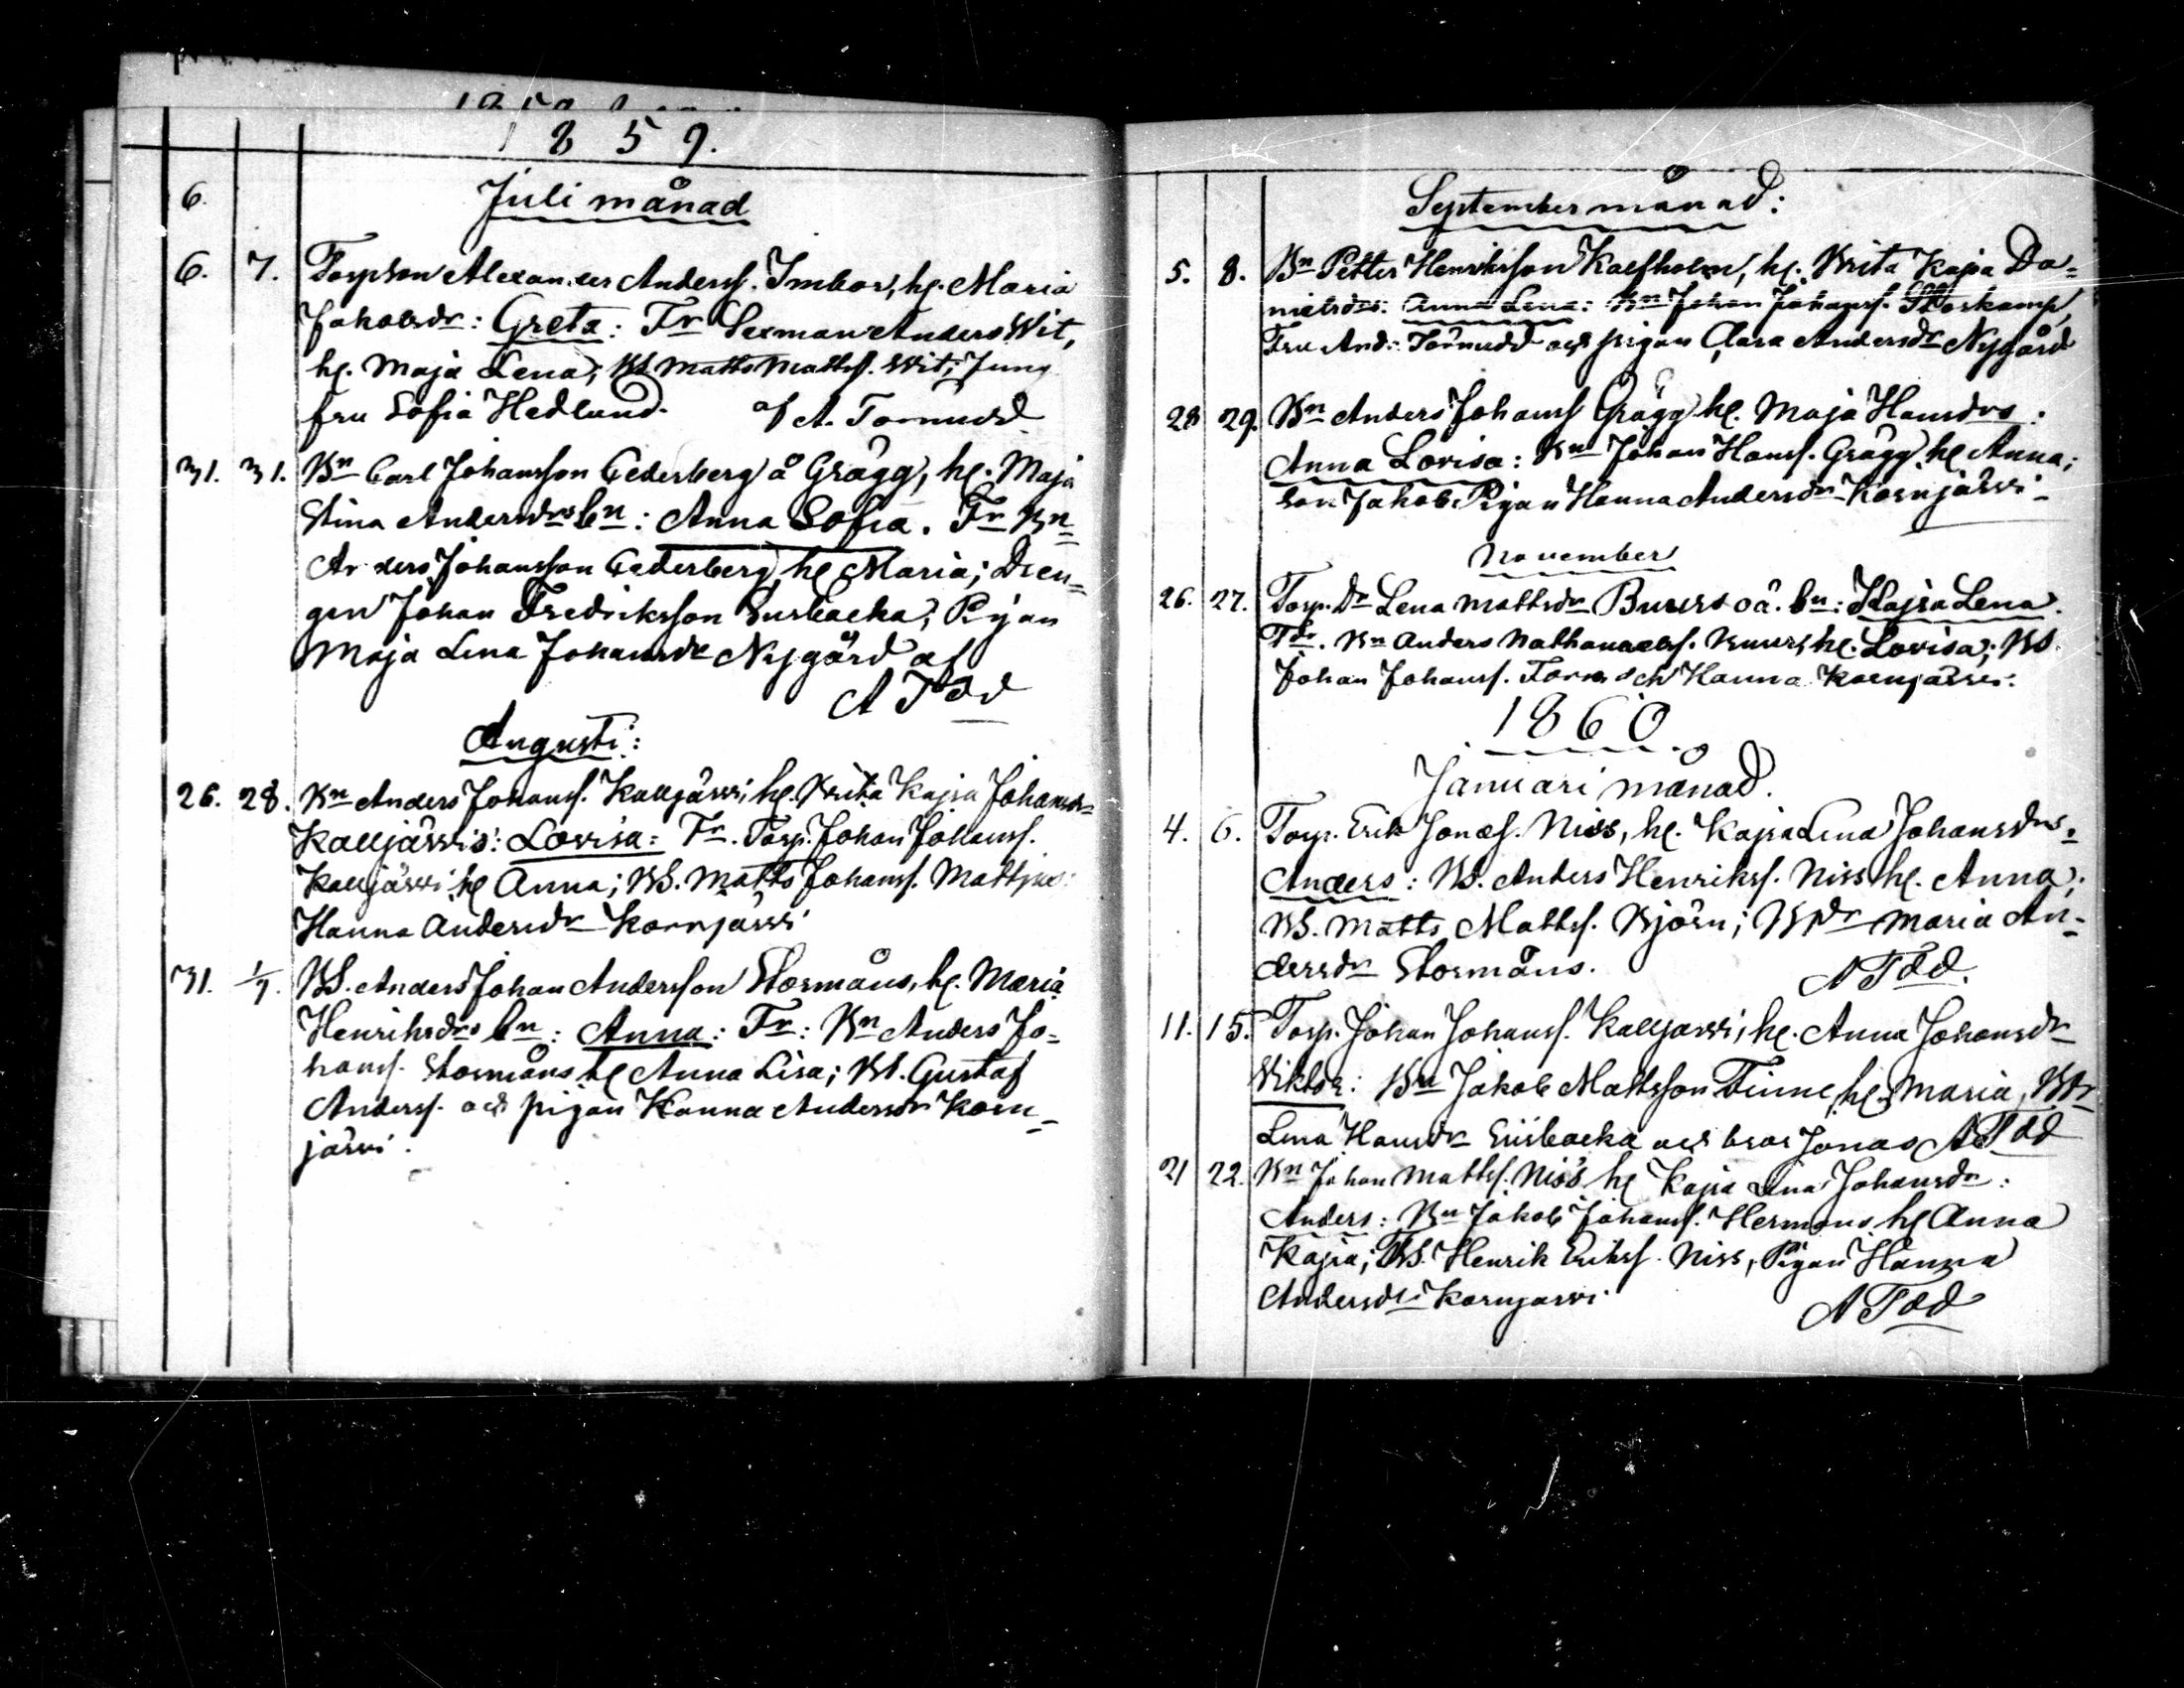 1859.
6. Juli månad
6. 7. Torpson Alexander Anderss. Imbar, h. Maria
Jakobsdr: Greta: Fr Sexman Anders Wit,
h. Maja Lena; BS. Matts Mattss. Wit; Jung
fru Sofia Hedlund. af A. Tornudd
31. 31. Bn Carl Johansson Cederberg å Grägg, h. Maja
Stina Andersdrs bn: Anna Sofia. Fr Bn
Anders Johansson Cederberg, h Maria; Dren=
gen Johan Fredriksson Eurbacka; Pigan
Maja Lena Johansdr Nygård af
A Tdd
Augusti:
26. 28. Bn Anders Johanss. Kalljärvi, h. Brita Kajsa Johansdr
Kalljärvis: Lovisa: Fr. Torp. Johan Johanss.
Kalljärvi, h Anna; BS. Matts Johanss. Mattjus:
Hanna Andersdr Kornjärvi
31. 1/9. BS. Anders Johan Andersson Stormåns, h. Maria
Henriksdrs bn: Anna: Fr: Bn Anders Jo=
hanss. Stormåns, h Anna Lisa; BS. Gustaf
Anderss. och pigan Hanna Andersdr Korn=
järvi.
September månad:
5. 8. Bn Petter Henriksson Kaltholm, h. Brita Kajsa Da=
nielsdrs: Anna Lena: Bn Johan Johanss. Storkamp,
Fru And. Tornudd och pigan Clara Andersdr Nygård
28 29. Bn Anders Johanss Grägg h. Maja Hansdrs:
Anna Lovisa: Bn Johan Hanss. Grägg, h Anna;
son Jakob, Pigan Hanna Andersdr Kornjärvi
November
26. 27. Torp. Dr Lena Mattsdr Buurs oä. bn: Kajsa Lena.
Fdr. Bn Anders Nathanaelss. Buurs, h. Lovisa; BS.
Johan Johanss. och Hanna Kornjärvi.
1860.
Januari månad.
4. 6. Torp. Erik Jonass. Niss, h. Kajsa Lena Johansdrs.
Anders: BS. Anders Henrikss. Niss h. Anna;
BS. Matts Mattss. Björn; BDr Maria An=
dersdr Stormåns. A Tdd.
11. 15. Torp. Johan Johanss. Kalljarvi, h. Anna Johansdr
Viktor: Bn Jakob Mattsson Finne, h. Maria, BDr
Lena Hansdr Eurbacka och bror Jonas A Tdd
21 22. Bn Johan Mattss. Niss h Kajsa Lena Johansdr:
Anders: Bn Jakob Johanss. Hermans h Anna
Kajsa; BS. Henrik Erikss. Niss, Pigan Hanna
Andersdr Kornjarvi A Tdd